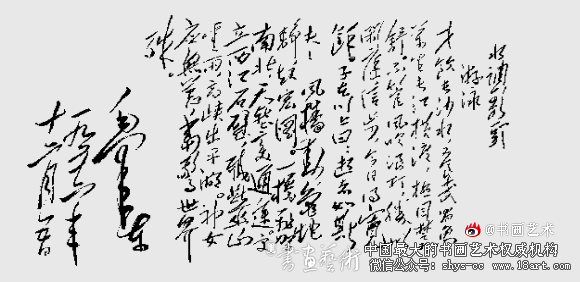 水调歌头
游泳
才饮长沙水,又食武昌鱼
万里长江横渡,极目楚天
舒。不管风吹浪打,胜似
闲庭信步,今日得宽
馀。子在川上曰:逝者如斯
夫!风樯动,龟蛇
静,起宏图。一桥飞架
南北,天堑变通途。更
立西江石壁,截断巫山
云雨,高峡出平湖。神女
应无恙,当惊世界
殊。
毛泽东
一九五六年
十二月五日
书画艺术
@书画艺术
中国最大的书画艺术权威机构
微信公众号:shys-cc 网址:www.18art.com